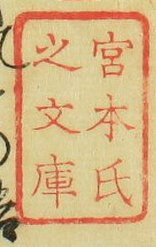 宮本氏
之文庫